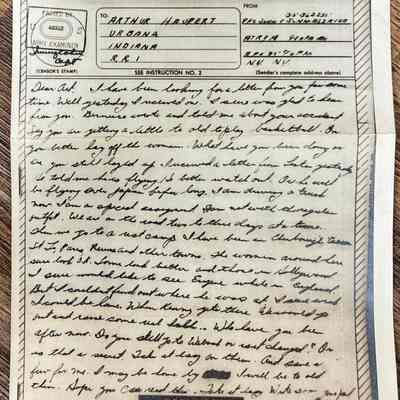 PASSED BY
ARMY EXAMINER
(CENSOR'S STAMP)
TO:
ARTHUR HAUPERT
URBANA
INDIANA
R R 1
FROM
N.Y. N.Y.
SEE INSTRUCTION NO. 2
(Sender's complete address above)
Dear Art. I have been looking for a letter from you for some
time. Well yesterday I received one. I sure was glad to hear
from you. Bernice wrote and told me about your accident
Say you are getting a little to old to play basketball. Or
you better lay off the women. What have you been doing or
are you still layed up. I received a letter from yesterday
he told me he's flying, better watch out. Or he will
be flying over before long. I am driving a truck
now I am on special assignment. I am not with the regular
outfit. We are on the road two three days at a time.
then we go to a rest camp. I have been in Cherbourg
St Lo, Paris, Reims and other towns. The women around here
sure look O.K. Some look better and those in Hollywood
I sure would like to see Eugene while in England
But I couldn't find out where he was at. I sure wish
I could be home. When Kenny gets there
out and raise some hell. Who have you been
after now. Do you still go to Wabash or isn't changed? Or
is that a secret. Take it easy on them. And save a
few for me. I may be home by I will be to old
then. Hope you can read this. Take it easy. Write soon